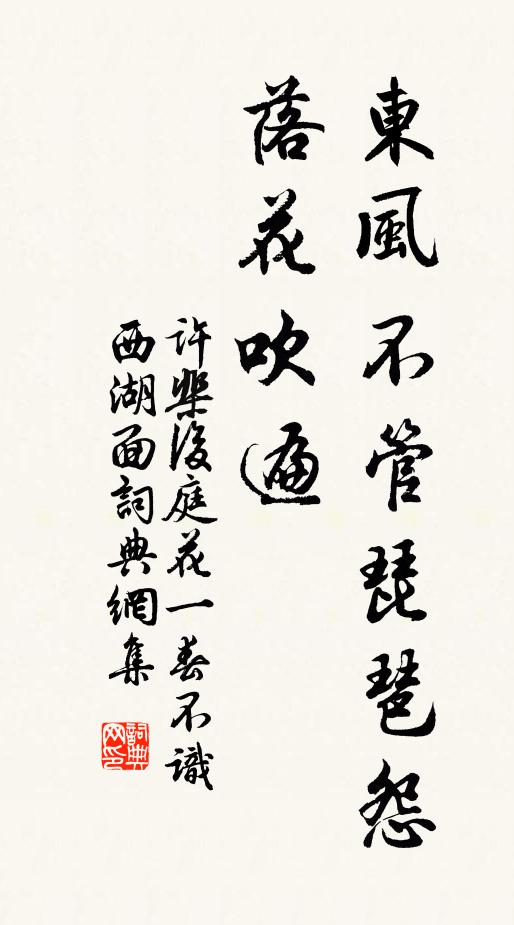 東風不管琵琶怨
落花吹遍
許棐後庭花一春不識
西湖面詞典網集
詞典
网印